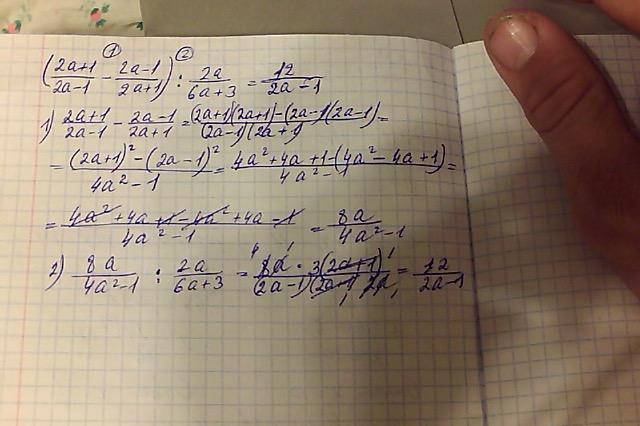 ① ②
((2a+1)/(2a-1) - (2a-1)/(2a+1)) : 2a/(6a+3) = 12/(2a-1)
1) (2a+1)/(2a-1) - (2a-1)/(2a+1) = ((2a+1)(2a+1)-(2a-1)(2a-1))/((2a-1)(2a+1)) =
= ((2a+1)²-(2a-1)²)/(4a²-1) = (4a²+4a+1-(4a²-4a+1))/(4a²-1) =
= (4a²+4a+1-4a²+4a-1)/(4a²-1) = 8a/(4a²-1)
2) 8a/(4a²-1) : 2a/(6a+3) = (8a · 3(2a+1))/((2a-1)(2a+1) 2a) = 12/(2a-1)